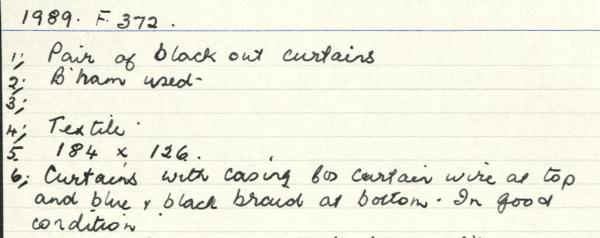 1989. F. 372.
1; Pair of black out curtains
2; B'ham used.
3;
4; Textile.
5. 184 x 126.
6; Curtains with casing for curtain wire at top
and blue & black braid at bottom. In good
condition